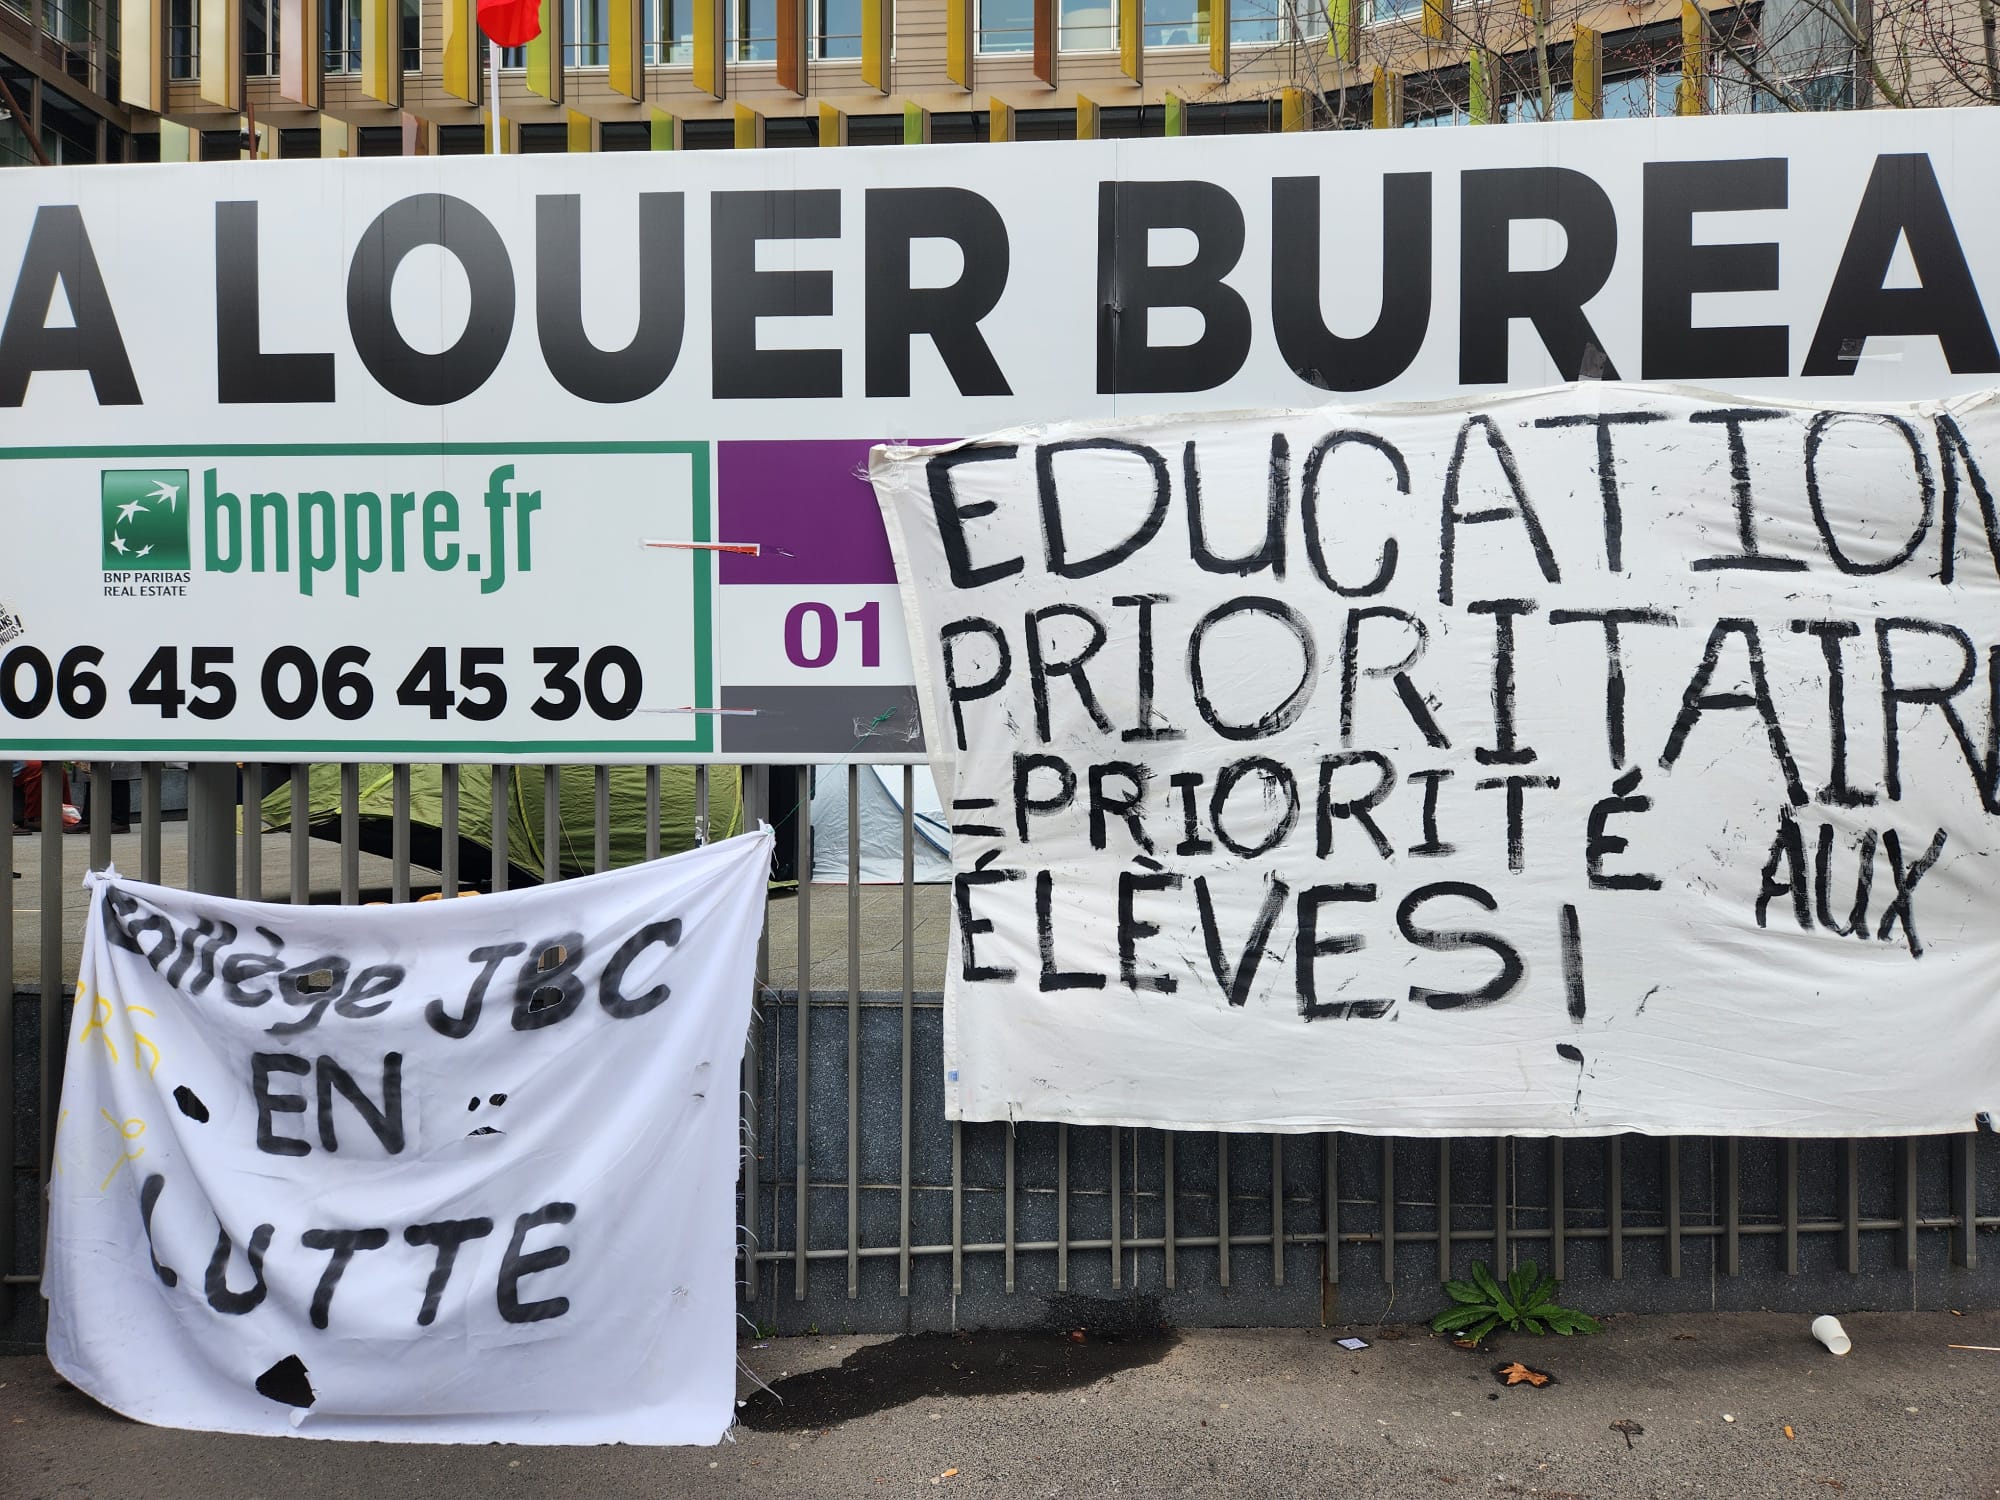 A LOUER BUREA
bnppre.fr
BNP PARIBAS
REAL ESTATE
06 45 06 45 30
01
EDUCATION
PRIORITAIRE
=PRIORITÉ AUX
ÉLÈVES!
collège JBC
EN
LUTTE